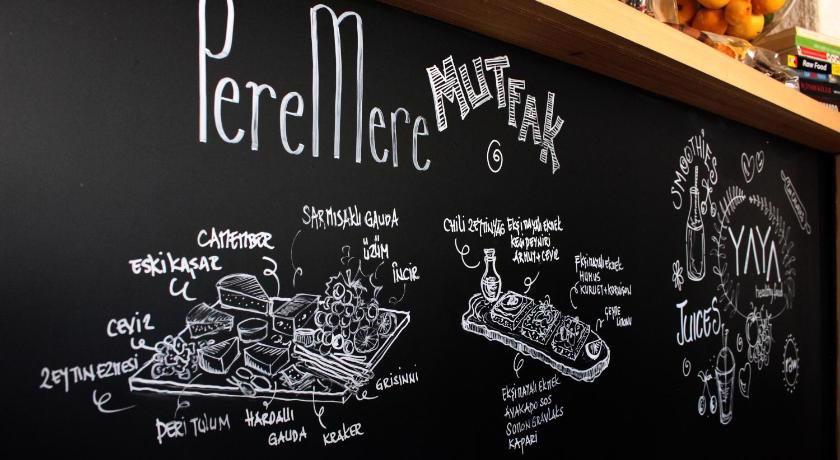 PereMere
MUTFAK
SARMISAKLI GAUDA
CAMEMBER
ÜZÜM
ESKİ KAŞAR
İNCİR
CEVİZ
ZEYTİN EZMESİ
DERİ TULUM
HARDALLI
GAUDA
KRAKER
GRISINNI
CHILI ZEYTİNYAĞ
EKŞİ MAYALI EKMEK
KEÇİ PEYNİRİ
ARMUT + CEVİZ
EKŞİ MAYALI EKMEK
HUMUS
EKŞİ MAYALI EKMEK
AVAKADO SOS
SOMON GRAVLAKS
KAPARİ
SMOOTHIES
YAYA
healthy food
JUICES
Raw Food